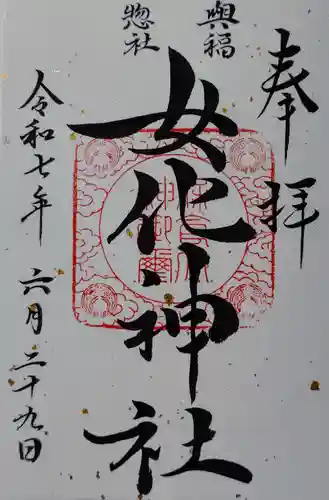 奉拝
與福
惣社
女化神社
令和七年
六月二十九日